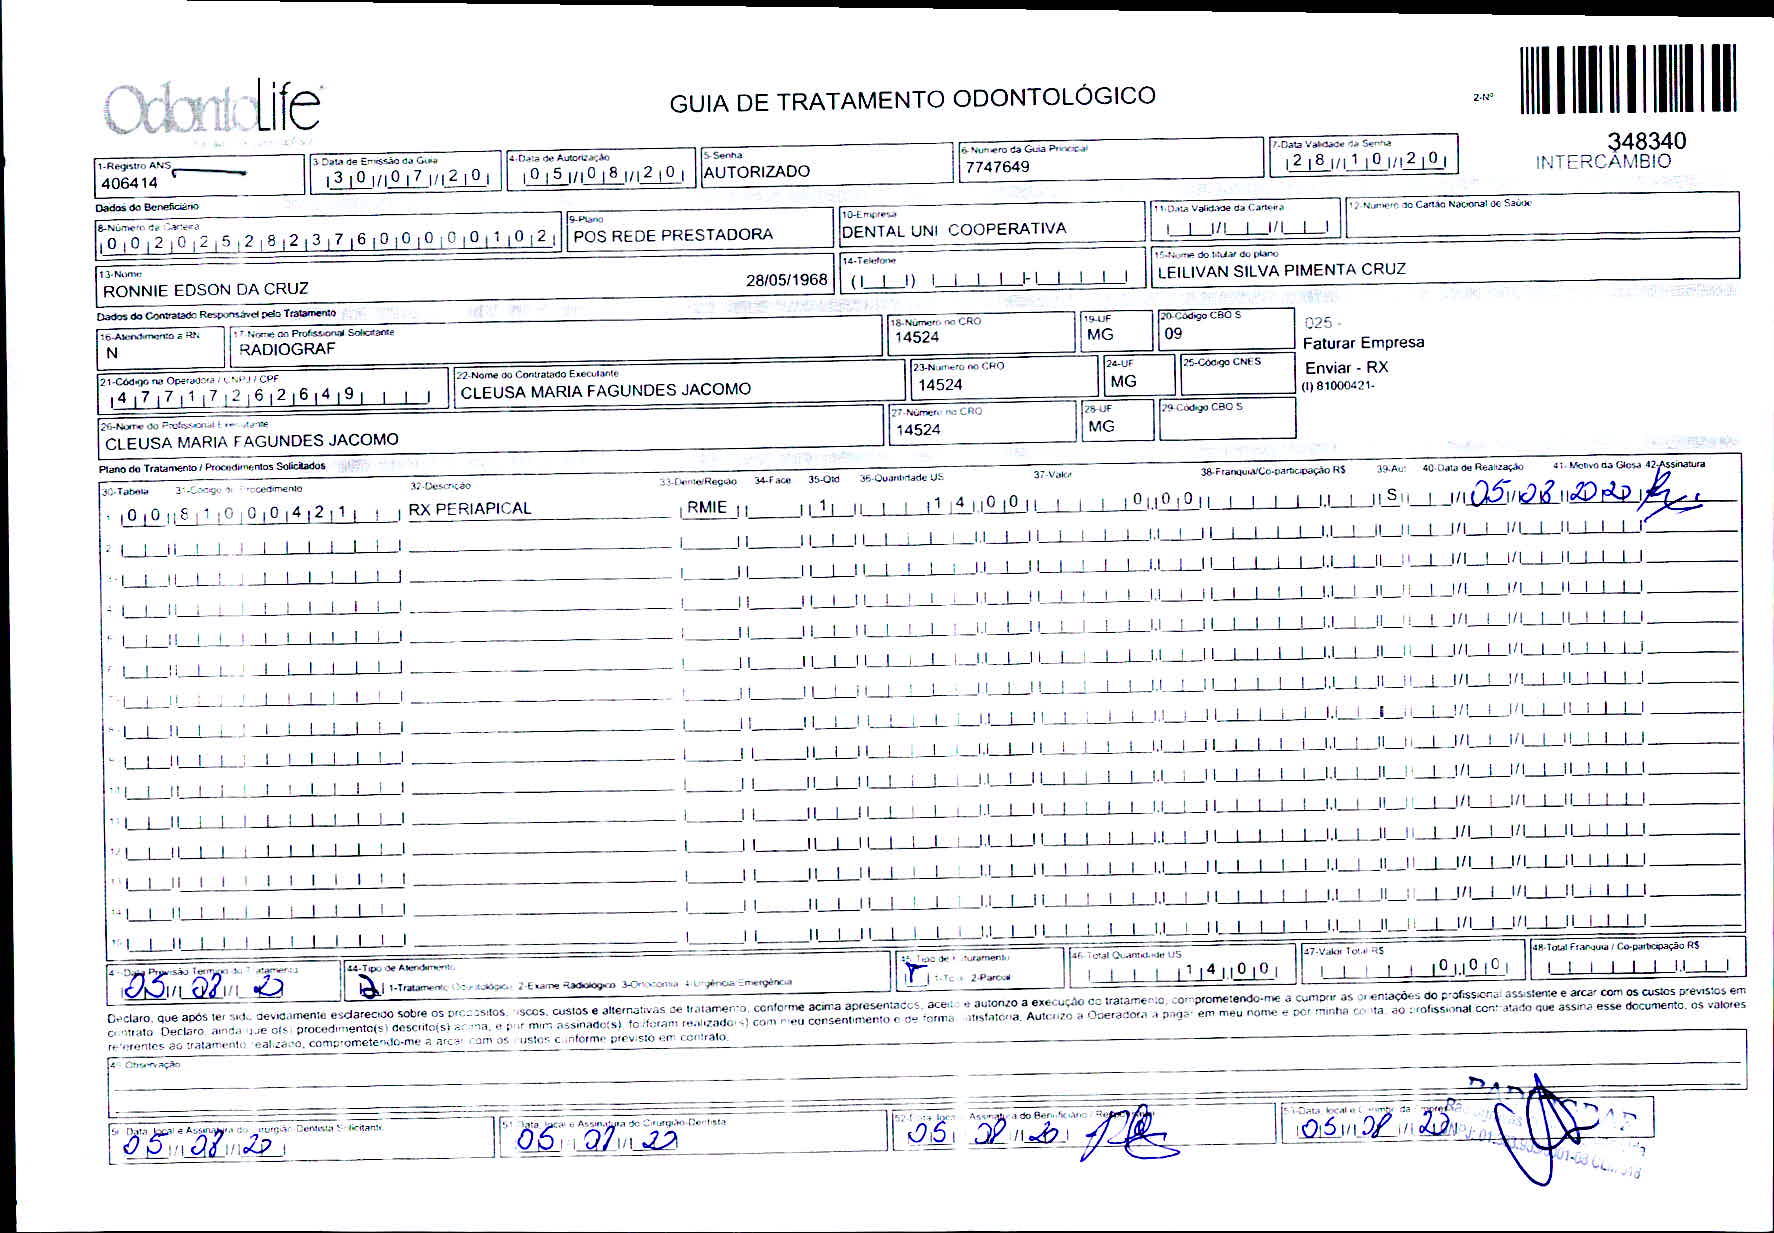 OdontoLife
GUIA DE TRATAMENTO ODONTOLÓGICO
2-Nº
348340
INTERCÂMBIO
1-Registro ANS
406414
3-Data de Emissão da Guia
30/07/20
4-Data de Autorização
05/08/20
5-Senha
AUTORIZADO
6-Numero da Guia Principal
7747649
7-Data Validade da Senha
28/10/20
Dados do Beneficiário
8-Número da Carteira
00202528237600000102
9-Plano
POS REDE PRESTADORA
10-Empresa
DENTAL UNI COOPERATIVA
11-Data Validade da Carteira
12-Numero do Cartão Nacional de Saúde
13-Nome
RONNIE EDSON DA CRUZ
28/05/1968
14-Telefone
15-Nome do titular do plano
LEILIVAN SILVA PIMENTA CRUZ
Dados do Contratado Responsável pelo Tratamento
16-Atendimento a RN
N
17-Nome do Profissional Solicitante
RADIOGRAF
18-Número no CRO
14524
19-UF
MG
20-Código CBO S
09
025 -
Faturar Empresa
Enviar - RX
(I) 81000421-
21-Código na Operadora / CNPJ / CPF
47717262649
22-Nome do Contratado Executante
CLEUSA MARIA FAGUNDES JACOMO
23-Numero no CRO
14524
24-UF
MG
25-Código CNES
26-Nome do Profissional Executante
CLEUSA MARIA FAGUNDES JACOMO
27-Número no CRO
14524
28-UF
MG
29-Código CBO S
Plano de Tratamento / Procedimentos Solicitados
30-Tabela 31-Código do Procedimento 32-Descrição 33-Dente/Região 34-Face 35-Qtd 36-Quantidade US 37-Valor 38-Franquia/Co-participação R$ 39-Aut 40-Data de Realização 41-Motivo da Glosa 42-Assinatura
1 00 81000421 RX PERIAPICAL RMIE 1 14,00 0,00 S 05/08/2020
2
3
4
5
6
7
8
9
10
11
12
13
14
15
43-Data Previsão Termino do Tratamento
05/08/20
44-Tipo de Atendimento
2 1-Tratamento Odontológico 2-Exame Radiológico 3-Ortodontia 4-Urgência Emergência
45-Tipo de Faturamento
1-Total 2-Parcial
46-Total Quantidade US
14,00
47-Valor Total R$
0,00
48-Total Franquia / Co-participação R$
Declaro, que após ter sido devidamente esclarecido sobre os propósitos, riscos, custos e alternativas de tratamento, conforme acima apresentados, aceito e autorizo a execução do tratamento, comprometendo-me a cumprir as orientações do profissional assistente e arcar com os custos previstos em
contrato. Declaro, ainda que o(s) procedimento(s) descrito(s) acima, e por mim assinado(s), foi/foram realizado(s) com meu consentimento e de forma satisfatória. Autorizo a Operadora a pagar em meu nome e por minha conta, ao profissional contratado que assina esse documento, os valores
referentes ao tratamento realizado, comprometendo-me a arcar com os custos conforme previsto em contrato.
49-Observação
50-Data, local e Assinatura do Cirurgião Dentista Solicitante
05/08/20
51-Data, local e Assinatura do Cirurgião-Dentista
05/08/20
52-Data, local e Assinatura do Beneficiário / Responsável
05/08/20
53-Data, local e Carimbo da Empresa
05/08/20